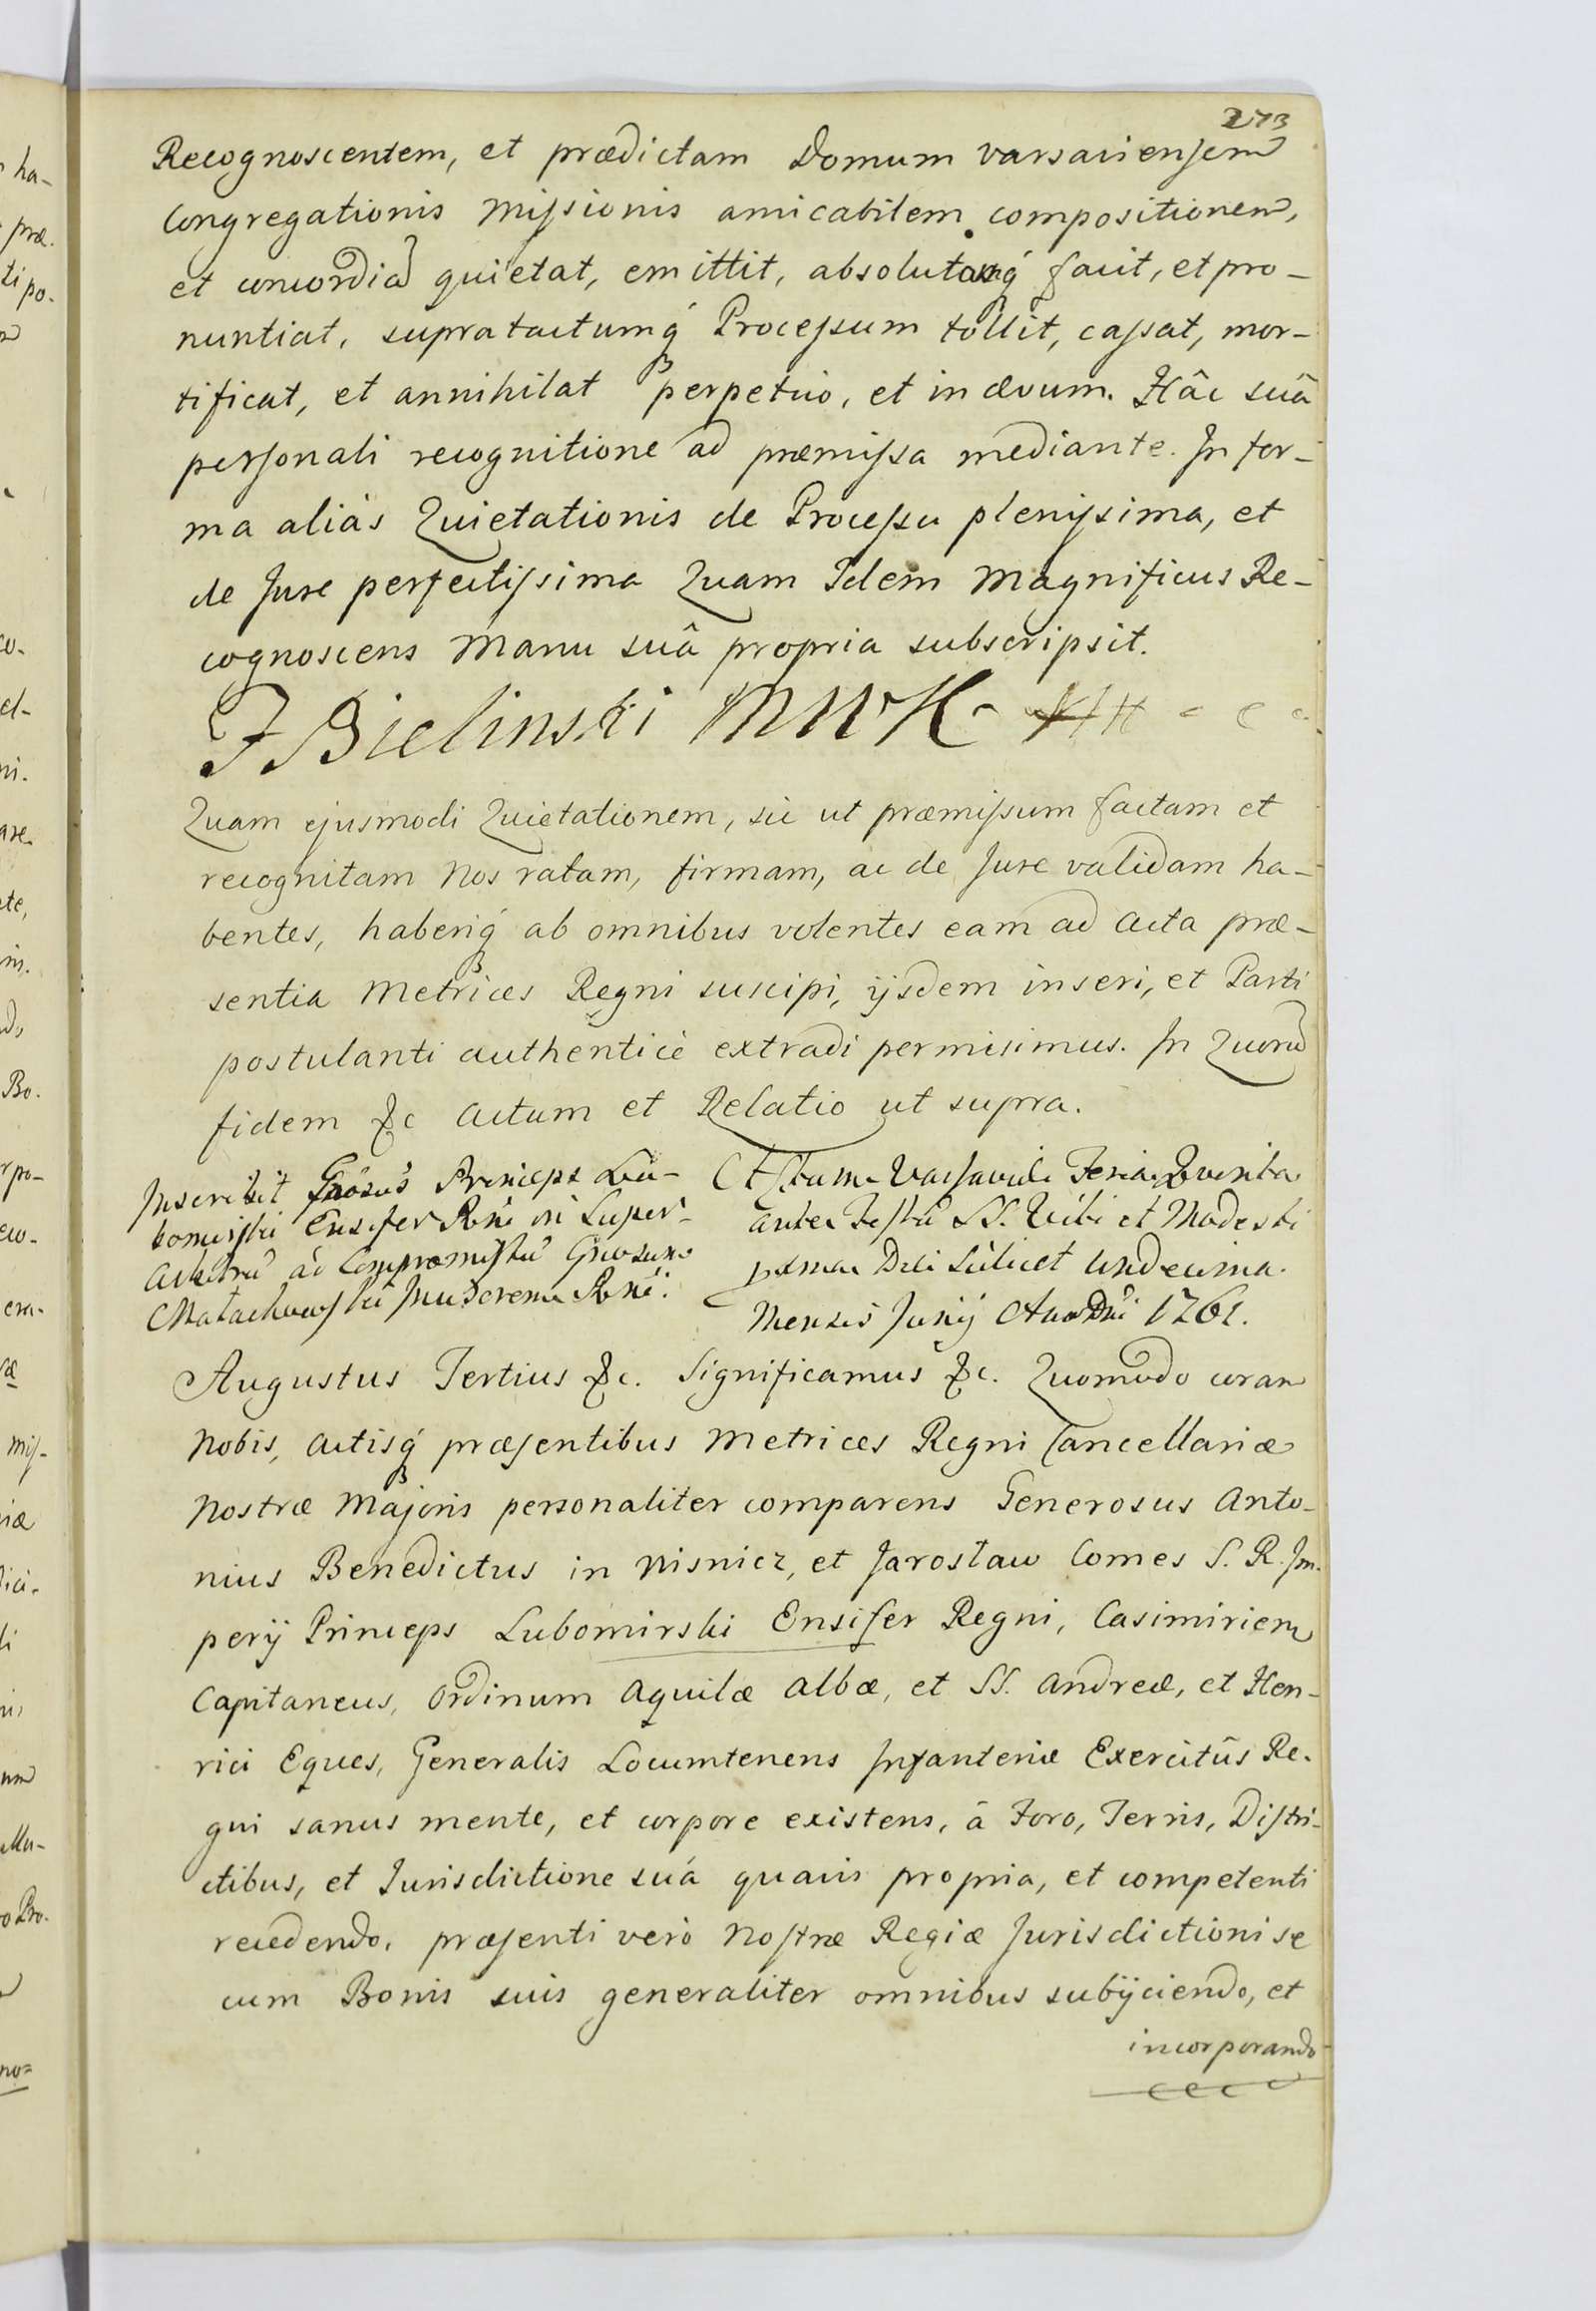 273
Recognoscentem, et prædictam Domum varsaviensem
Congregationis Missionis amicabilem compositionem,
et concordiã quietat, emittit, absolutamq́ facit, et pro-
nuntiat, supratactumq́ Processum tollit, cassat, mor-
tificat, et annihilat perpetuo, et in ævum. Hâc suâ
personali recognitione ad præmissa mediante. In for-
ma aliàs Quietationis de Processu plenissima, et
de Jure perfectissima Quam Idem Magnificus Re-
cognoscens Manu suâ propria subscripsit.
F Bielinski MWK
Quam ejusmodi Quietationem, sic ut præmissum factam et
recognitam Nos ratam, firmam, ac de Jure validam ha-
bentes, haberiq́ ab omnibus volentes eam ad Acta præ-
sentia Metrices Regni suscipi, ijsdem inseri, et Parti
postulanti authenticè extradi permisimus. In Quorũ
fidem &c Actum et Relatio ut supra.
Inscribit Gnõsus Princeps Lu-
bomirski Ensifer Rñi in Super-
Arbitrũ ad Compromissũ Gnosum
Małachowski Incisorem Rñi.
Actum Varsaviæ Feria Quinta
ante Festũ SS. Viti et Modesti
pxma Die scilicet Undecima
Mensis Junij Ano Dñi 1761.
Augustus Tertius &c. Significamus &c. Quomodo coram
Nobis, Actisq́ præsentibus Metrices Regni Cancellariæ
Nostræ Majoris personaliter comparens Generosus Anto-
nius Benedictus in Wisnicz, et Jarosław Comes S. R. Im-
perij Princeps Lubomirski Ensifer Regni, Casimirien
Capitaneus, Ordinum Aquilæ Albæ, et SS. Andreæ, et Hen-
rici Eques, Generalis Locumtenens Infanteriæ Exercitûs Re-
gni sanus mente, et corpore existens, â Foro, Terris, Distri-
ctibus, et Jurisdictione suâ quavis propria, et competenti
recedendo, præsenti verò Nostræ Regiæ Jurisdictioni se
cum Bonis suis generaliter omnibus subijciendo, et
incorporando